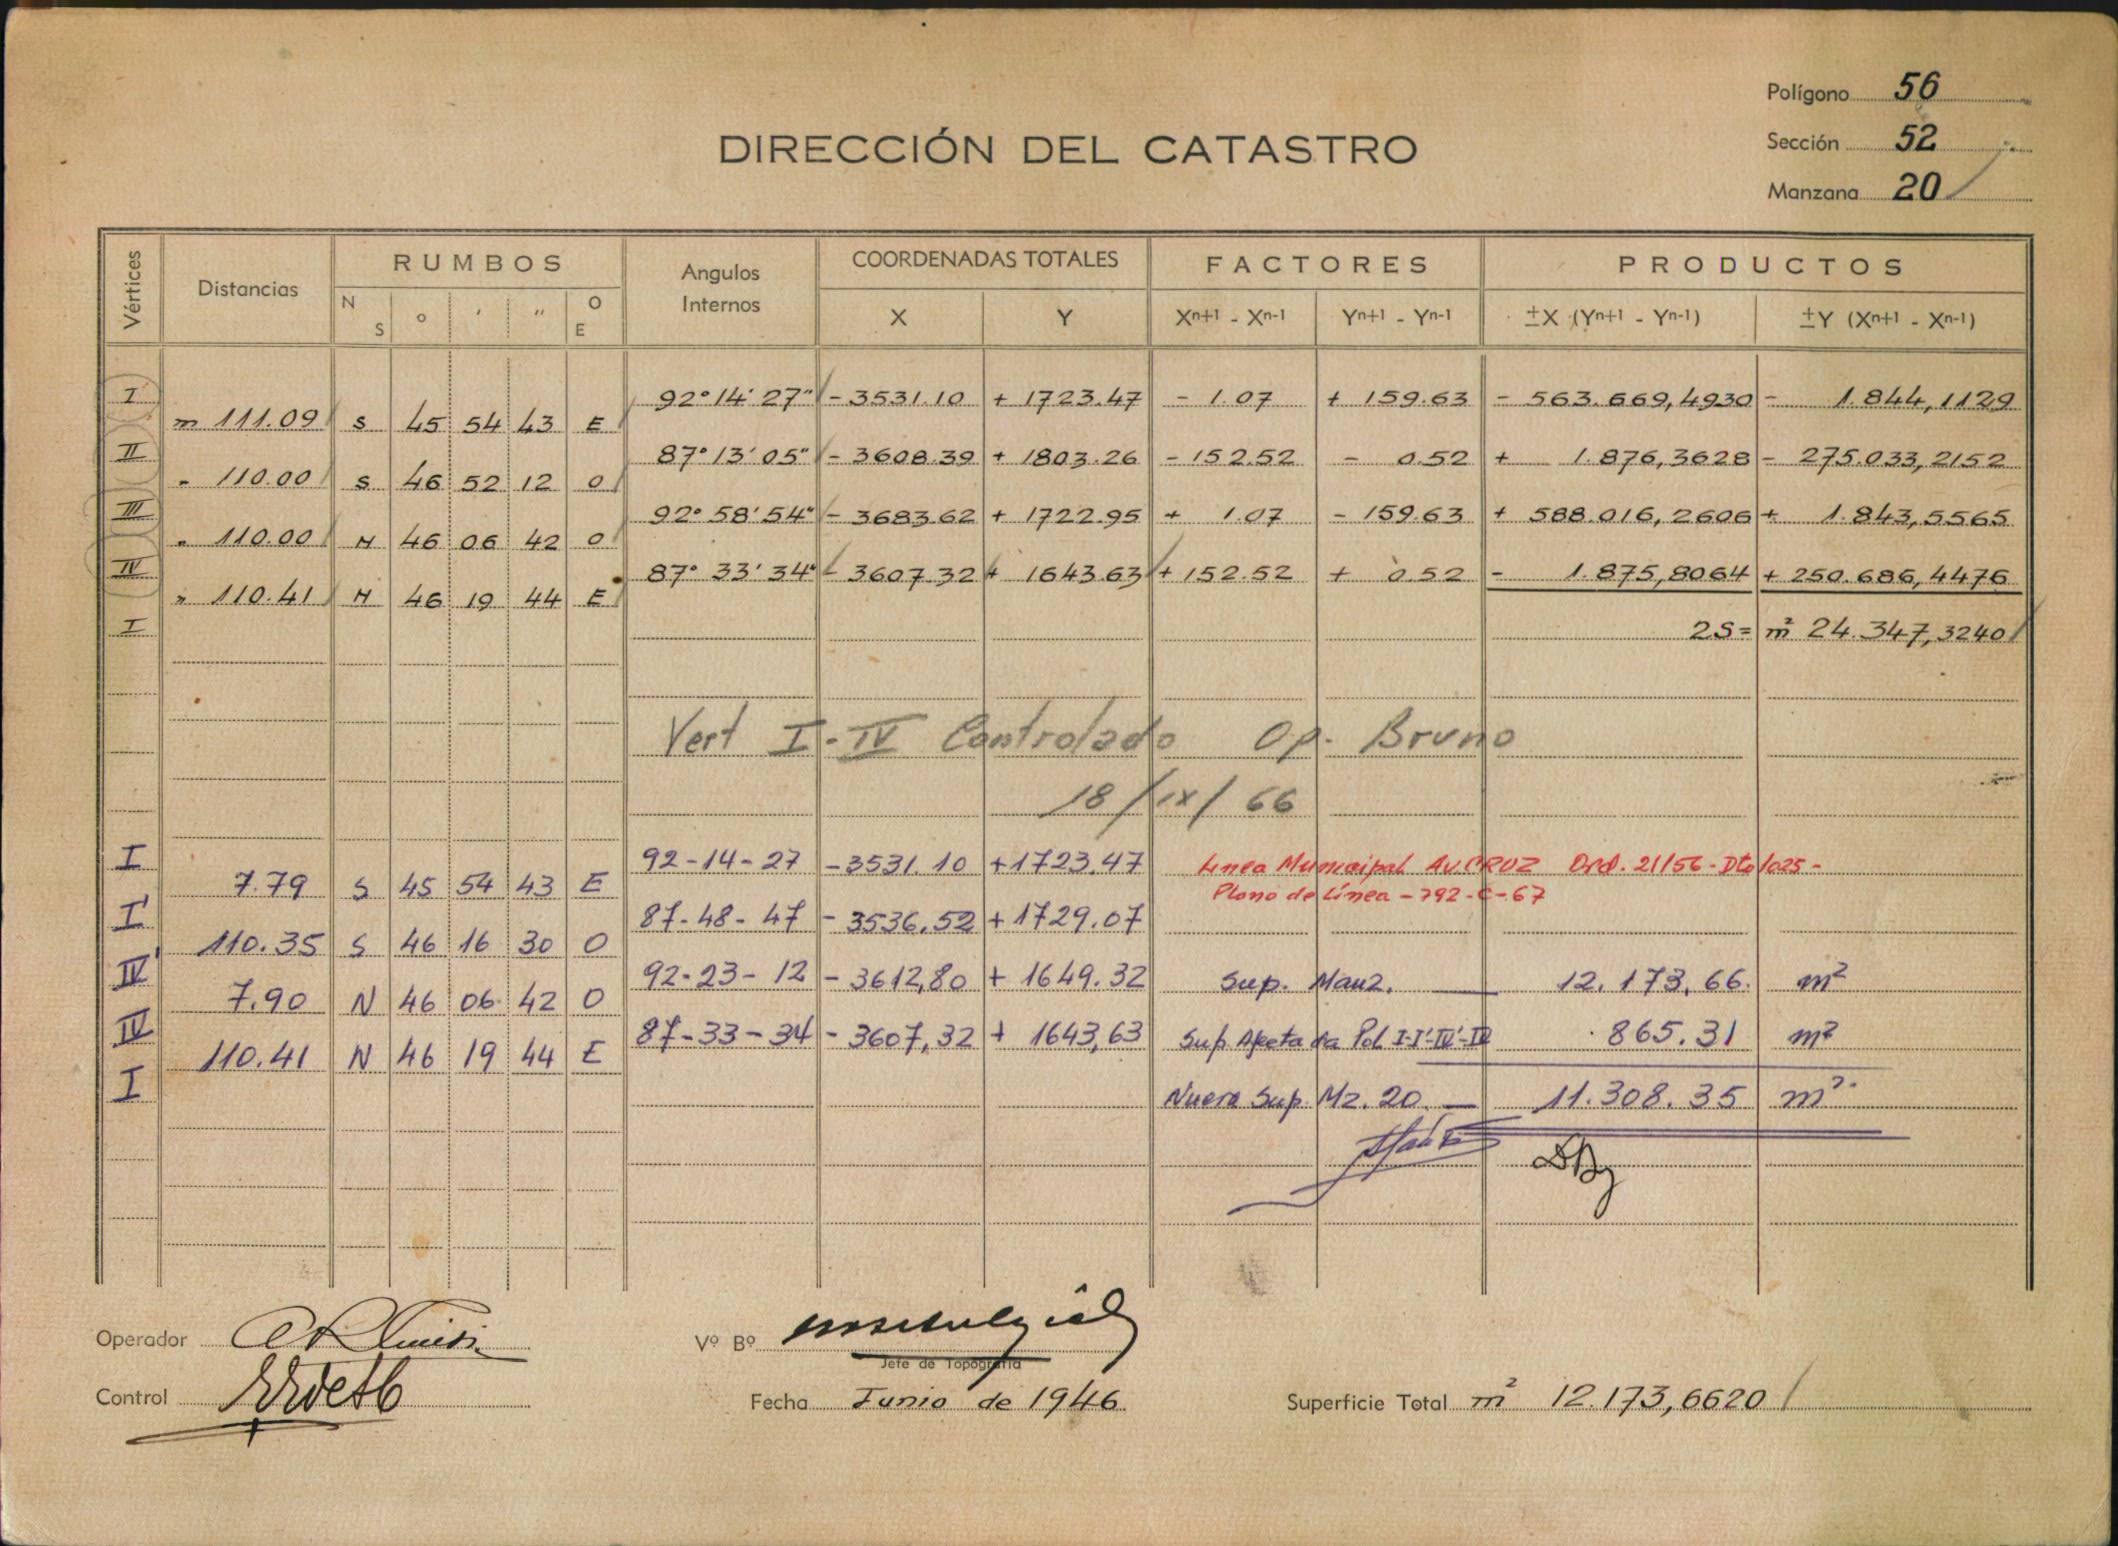 Polígono 56
DIRECCIÓN DEL CATASTRO
Sección 52
Manzana 20
Vértices Distancias RUMBOS Angulos Internos COORDENADAS TOTALES FACTORES PRODUCTOS
N S ° ' " O E X Y Xn+1 - Xn-1 Yn+1 - Yn-1 ±X (Yn+1 - Yn-1) ±Y (Xn+1 - Xn-1)
I 92° 14' 27" - 3531.10 + 1723.47 - 1.07 + 159.63 - 563.669,4930 - 1.844,1129
m 111.09 S 45 54 43 E
II 87° 13' 05" - 3608.39 + 1803.26 - 152.52 - 0.52 + 1.876,3628 - 275.033,2152
" 110.00 S 46 52 12 O
III 92° 58' 54" - 3683.62 + 1722.95 + 1.07 - 159.63 + 588.016,2606 + 1.843,5565
" 110.00 N 46 06 42 O
IV 87° 33' 34" - 3607.32 + 1643.63 + 152.52 + 0.52 - 1.875,8064 + 250.686,4476
" 110.41 N 46 19 44 E
I 2S= m² 24.347,3240
Vert I-IV Controlado Op. Bruno
18/IX/66
I 92-14-27 -3531.10 +1723.47 Linea Municipal Av. CRUZ Ord. 21/56 - Dto 1025 -
7.79 S 45 54 43 E Plano de Línea - 792-C-67
I' 87-48-47 - 3536,52 +1729.07
110.35 S 46 16 30 O
IV' 92-23-12 - 3612,80 + 1649.32 Sup. Manz. 12.173,66. m²
7.90 N 46 06 42 O
IV 87-33-34 - 3607,32 + 1643,63 Sup. Afectada Pol I-I'-IV'-IV 865.31 m²
110.41 N 46 19 44 E
I Nueva Sup. Mz. 20 — 11.308.35 m²
Operador Vº Bº
Jefe de Topografía
Control Fecha Junio de 1946 Superficie Total m² 12.173,6620